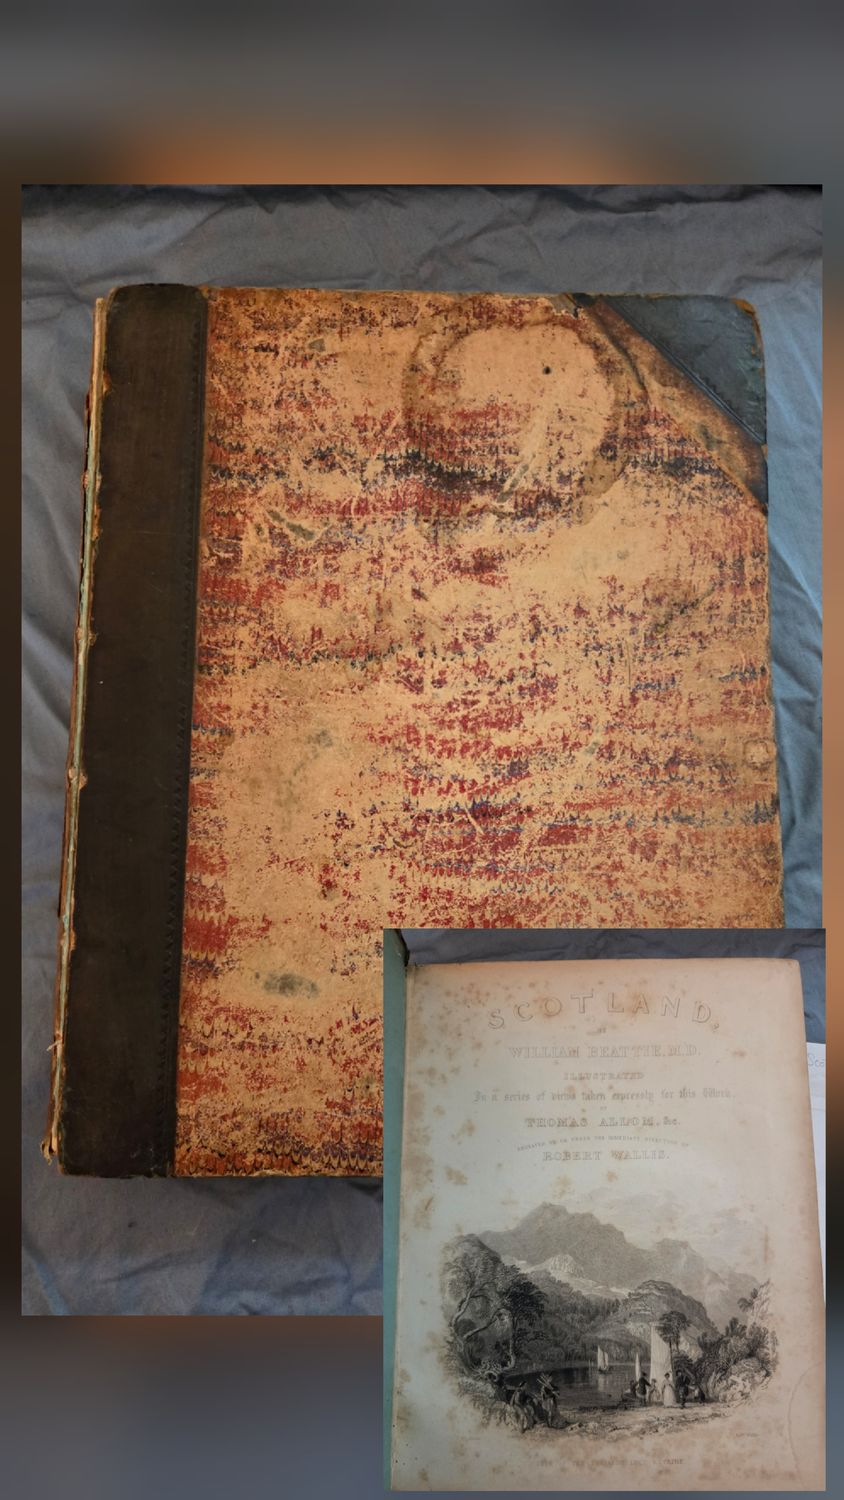 SCOTLAND,
BY
WILLIAM BEATTIE, M.D.
ILLUSTRATED
In a series of views taken expressly for this Work
BY
THOMAS ALLOM, &c.
ENGRAVED BY OR UNDER THE IMMEDIATE DIRECTION OF
ROBERT WALLIS.
Sco